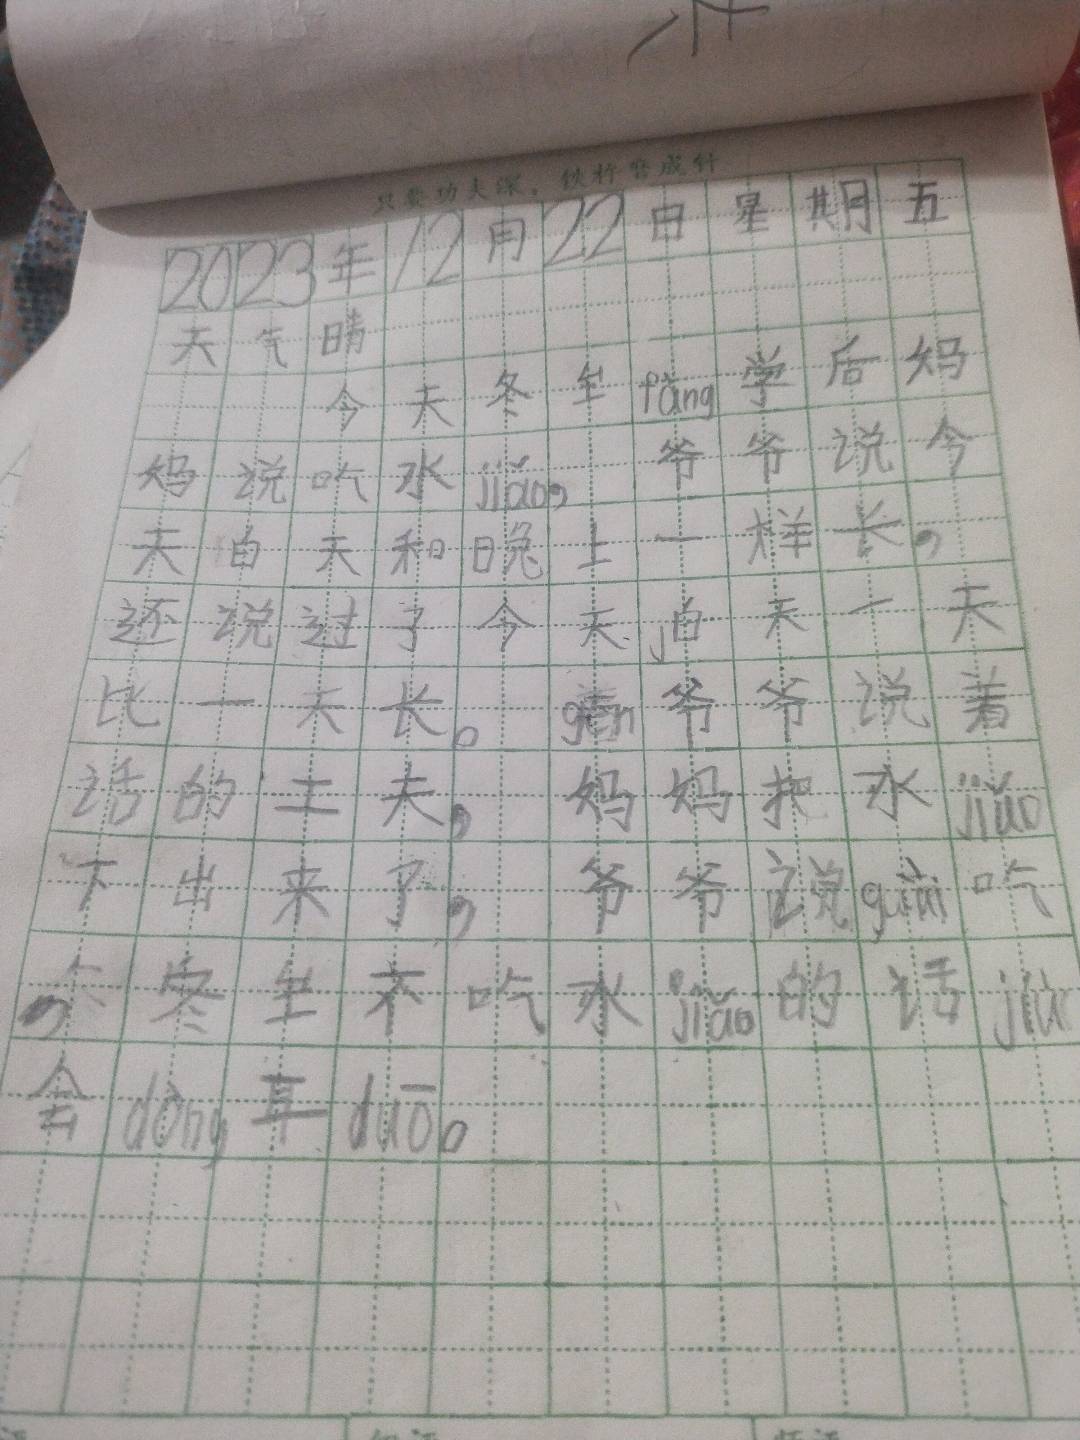 只要功夫深，铁杵磨成针
2023年12月22日星期五
天气晴
今天冬至fàng学后妈
妈说吃水jiǎo，爷爷说今
天白天和晚上一样长，
还说过了今天，白天一天
比一天长。gēn爷爷说着
话的工夫，妈妈把水jiǎo
下出来了，爷爷说guāi吃
，冬至不吃水jiǎo的话jiù
会dòng耳duō。